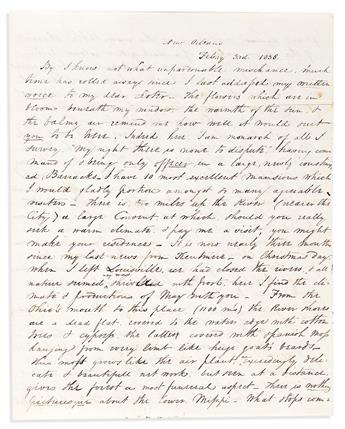 New Orleans
Feb'y 3rd 1836.
By I know not what unpardonable mischance, much
time has rolled away since I last addressed my written
voice to my dear sister. The flowers which are in
bloom beneath my window, the warmth of the sun &
the balmy air remind me how well it would suit
you to be here. Indeed here I am monarch of all I
survey "my right there is none to dispute" having com-
mand & being only officer in a large, newly construct
ed, Barracks. I have 10 most excellent mansions which
I would gladly portion amongst so many agreeable
visitors - There is, two miles up the River (nearer the
City) a large Convent at which should you really
seek a warm climate & pay me a visit, you might
make your residence - It is now nearly three months
since my last news from - on Christmas day
when I left Louisville, ice had closed the rivers, & all
nature seemed shrivelled with frost; here I find the cli-
mate & productions of May with you. - From the
Ohio's mouth to this place (1100 mls) the River shores
are a dead flat, covered to the waters edge with cotton
trees & cypress the latter covered with spanish moss
hanging from every limb like huge goats beards -
This moss grows like the air plant - exceedingly deli-
cate & beautiful net work, but seen at a distance,
gives the forest a most funereal aspect - There is nothing
picturesque about the lower Missppi - What steps com-